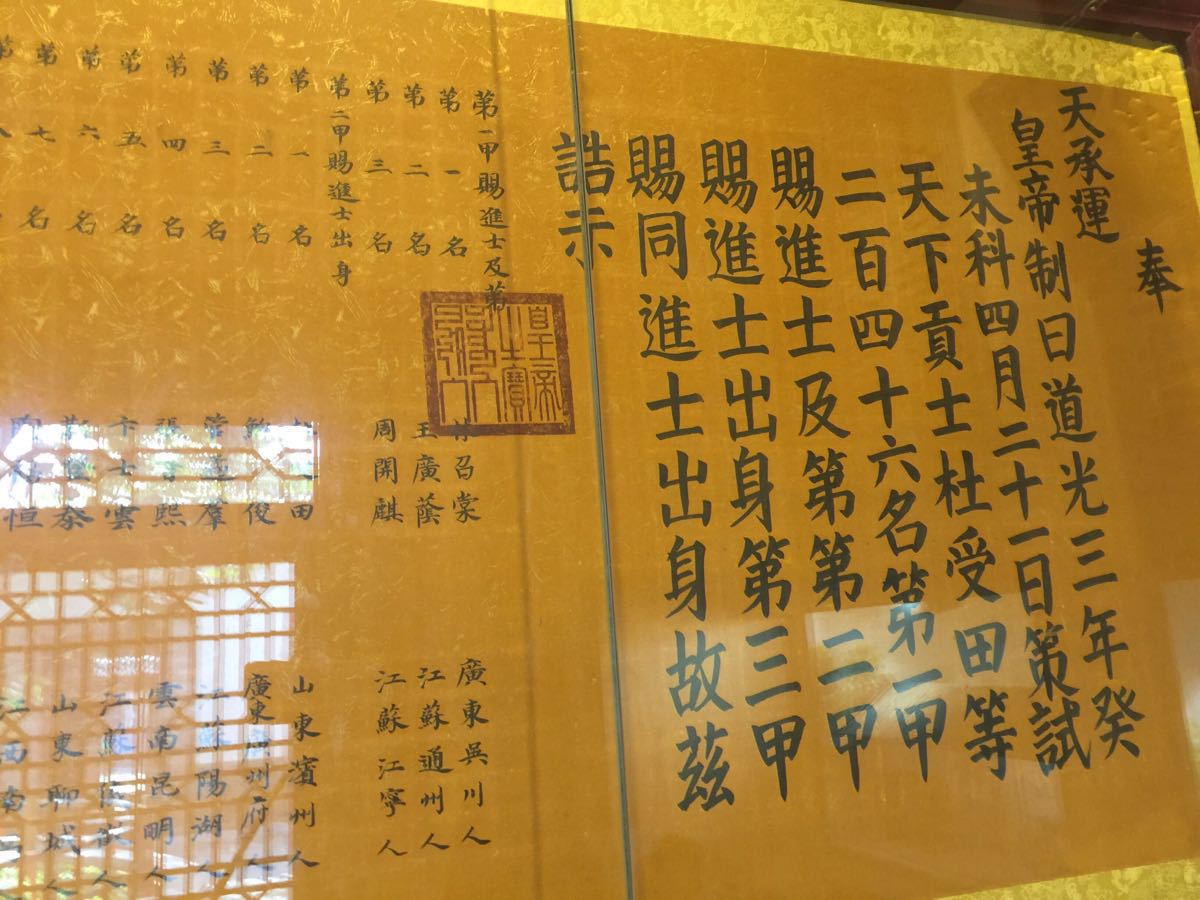 奉
天承運
皇帝制曰道光三年癸
未科四月二十一日策試
天下貢士杜受田等
二百四十六名第一甲
賜進士及第第二甲
賜進士出身第三甲
賜同進士出身故茲
誥示
苐一甲賜進士及苐
皇帝之寶
苐一名 林召棠 廣東吳川人
苐二名 王廣蔭 江蘇通州人
苐三名 周開麒 江蘇江寧人
苐二甲賜進士出身
苐一名 杜受田 山東濱州人
苐二名 鮑俊 廣東廣州府人
苐三名 管遹羣 江蘇陽湖人
苐四名 張 熙 雲南昆明人
苐五名 卞士雲 江蘇儀徵人
苐六名 泰 山東聊城人
苐七名 恒 江西南
苐八